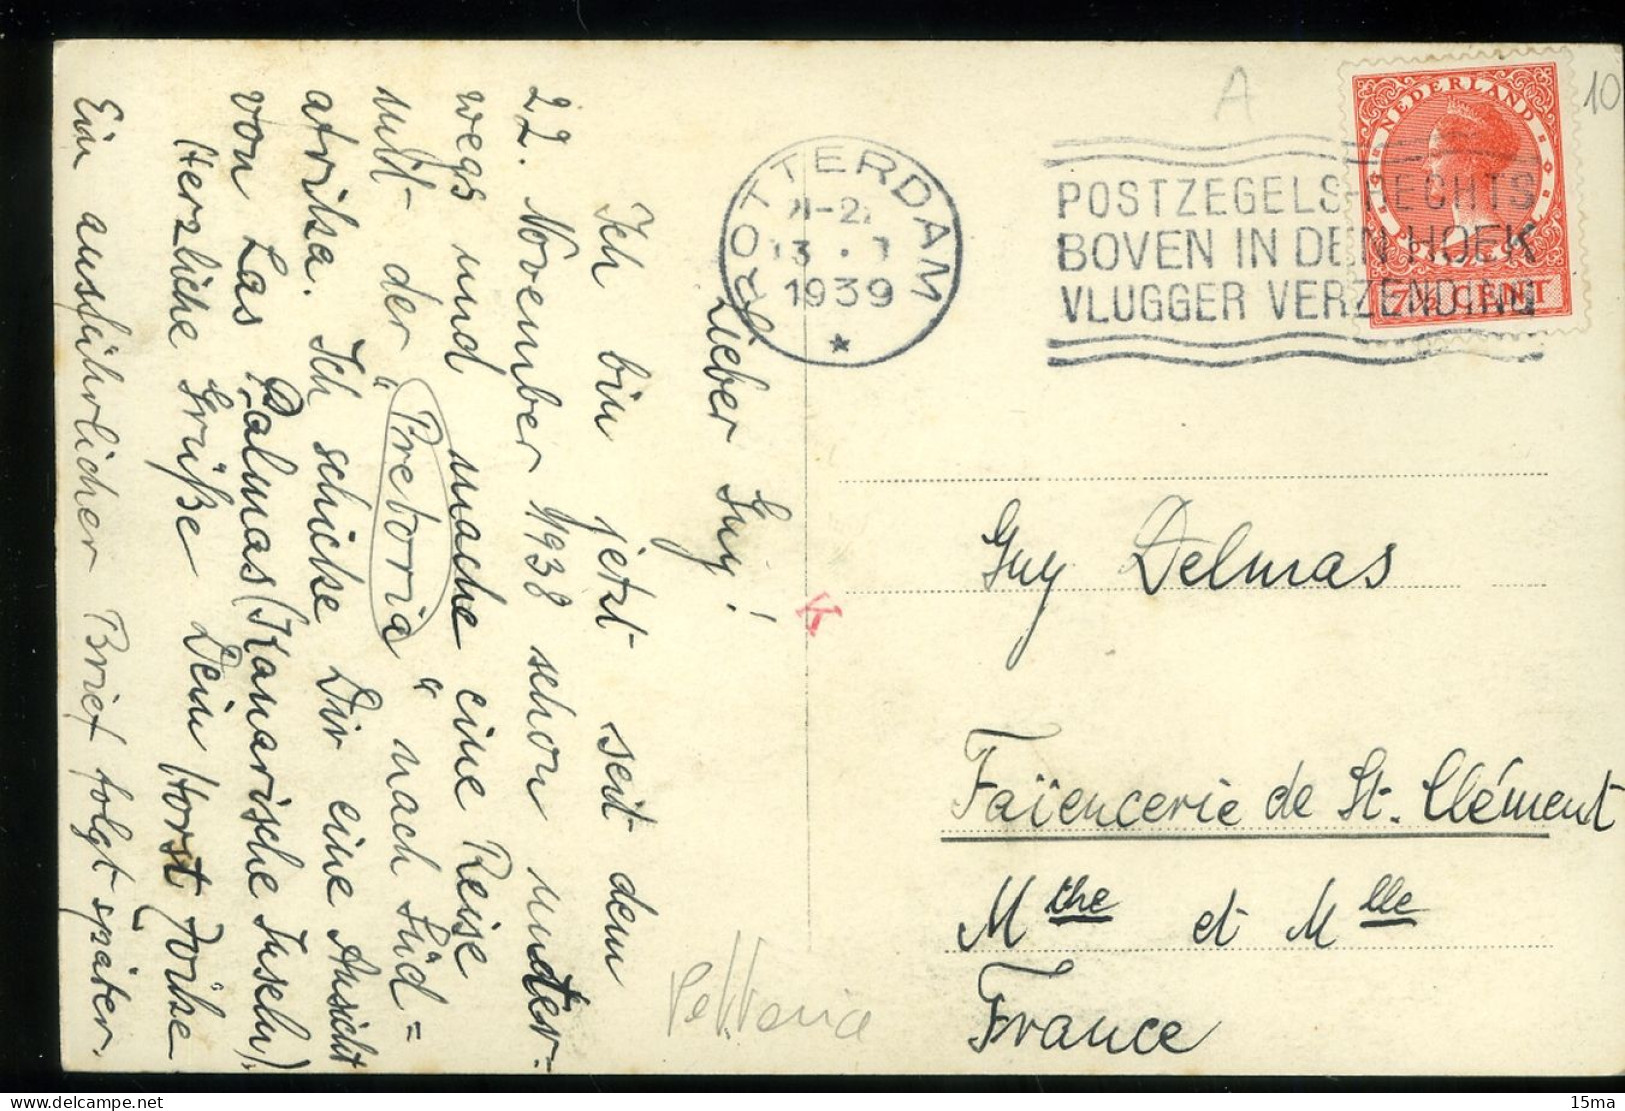 Lieber Guy!
Ich bin jetzt seit dem
22. November 1938 schon unter-
wegs und mache eine Reise
mit der „Pretoria“ nach Süd=
afrika. Ich schicke Dir eine Ansicht
von Las Palmas (Kanarische Inseln).
Herzliche Grüße Dein Horst
Ein ausführlicher Brief folgt später.
A
10
ROTTERDAM
1939
POSTZEGELS RECHTS
BOVEN IN DEN HOEK
VLUGGER VERZENDING
NEDERLAND
7½ CENT
K
Guy Delmas
Faïencerie de St. Clément
Mthe et Mlle
France
15ma